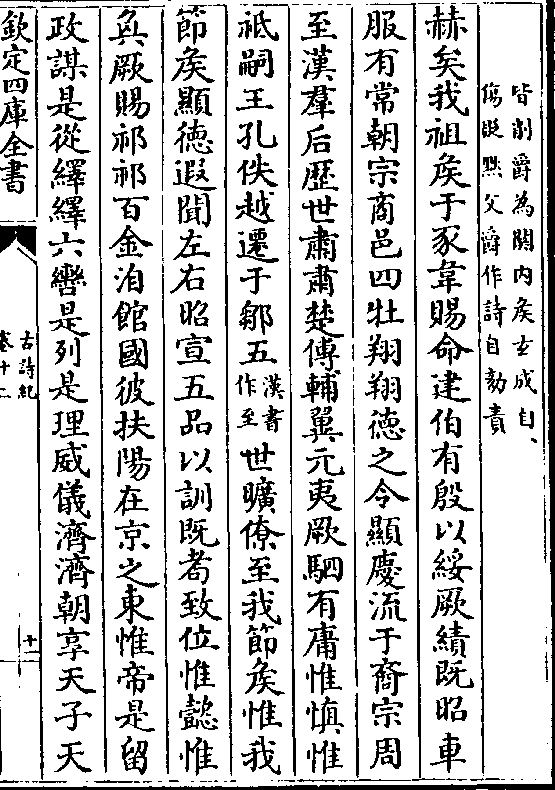 皆削爵為關内矦玄成自
傷貶黜父爵作詩自劾責
赫矣我祖矦于豕韋賜命建伯有殷以綏厥績既昭車
服有常朝宗商邑四牡翔翔德之令顯慶流于裔宗周
至漢羣后歴世肅肅楚傅輔翼元夷厥駟有庸惟慎惟
祗嗣王孔佚越遷于鄒五漢書作至世曠僚至我節矦惟我
節矦顯徳遐聞左右昭宣五品以訓既耇致位惟懿惟
奐厥賜祁祁百金洎館國彼扶陽在京之東惟帝是留
政謀是從繹繹六轡是列是理威儀濟濟朝享天子天
欽定四庫全書
古詩紀
卷十二
十一